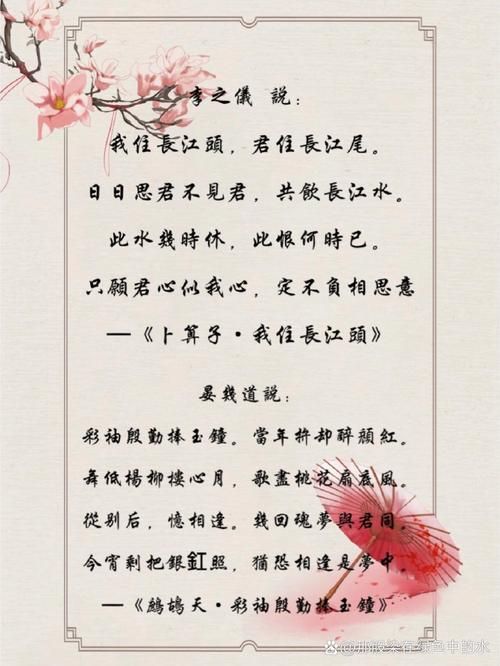 李之儀 說：
我住長江頭，君住長江尾。
日日思君不見君，共飲長江水。
此水幾時休，此恨何時已。
只願君心似我心，定不負相思意
—《卜算子·我住長江頭》
晏幾道說：
彩袖殷勤捧玉鐘。當年拚却醉顏紅。
舞低楊柳樓心月，歌盡桃花扇底風。
從别后，憶相逢。幾回魂夢與君同。
今宵剩把銀釭照，猶恐相逢是夢中。
—《鷓鴣天·彩袖殷勤捧玉鐘》